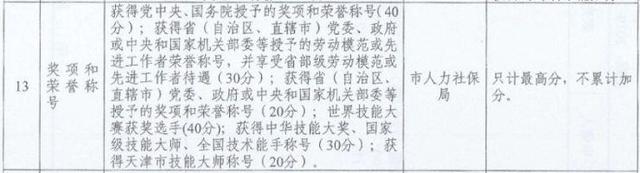 获得党中央、国务院授予的奖项和荣誉称号(40
分)；获得省（自治区、直辖市）党委、政府
或中央和国家机关部委等授予的劳动模范或先
进工作者荣誉称号，并享受省部级劳动模范或
先进工作者待遇（30分）；获得省（自治区、
直辖市）党委、政府或中央和国家机关部委等
授予的奖项和荣誉称号（20分）；世界技能大
赛获奖选手(40分)；获得中华技能大奖、国家
级技能大师、全国技术能手称号（30分）；获
得天津市技能大师称号（20分）。
13
奖项和
荣誉称
号
市人力社保
局
只计最高分，不累计加
分。